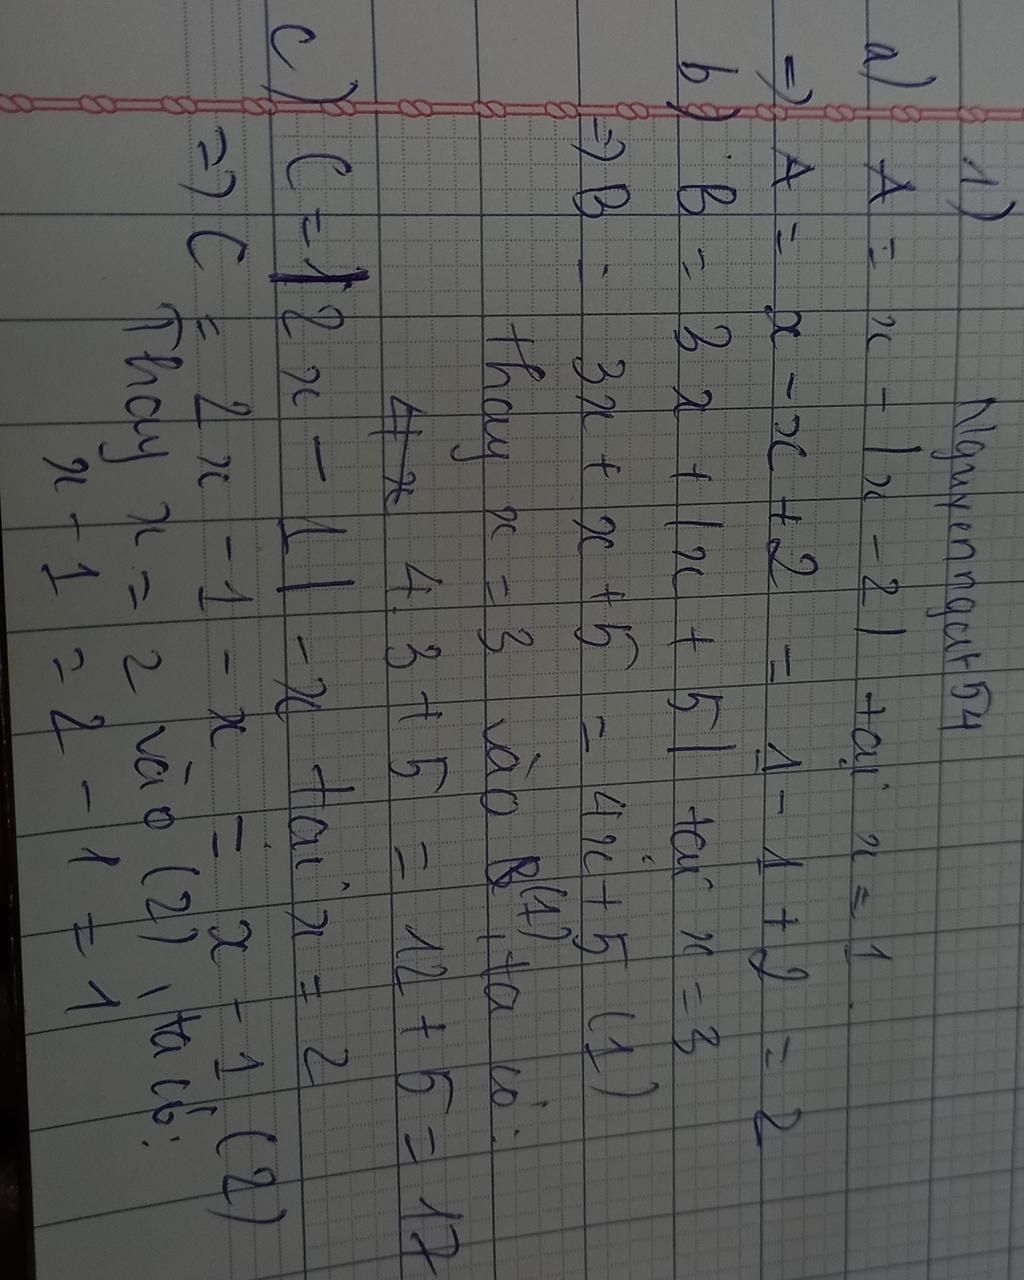 Nguyenngat54
1)
a) A = x - |x - 2| tại x = 1.
=> A = x - x + 2 = 1 - 1 + 2 = 2
b) B = 3x + |x + 5| tại x = 3
=> B = 3x + x + 5 = 4x + 5 (1)
thay x = 3 vào (1), ta có:
4.3 + 5 = 12 + 5 = 17
c) C = |2x - 1| - x tại x = 2
=> C = 2x - 1 - x = x - 1 (2)
Thay x = 2 vào (2), ta có:
x - 1 = 2 - 1 = 1